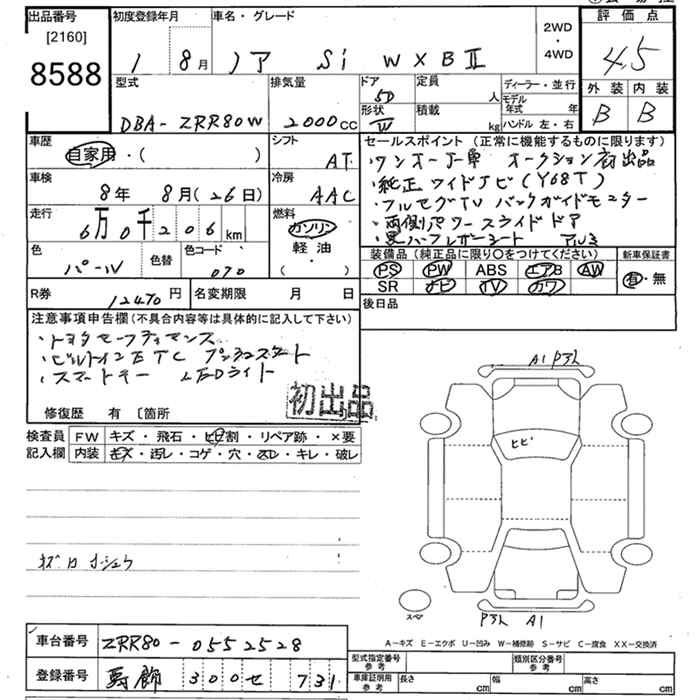 出品番号 初度登録年月 車名・グレード 2WD・4WD 評価点
[2160]
8588 1 8月 ノア Si W×BⅡ 4.5
型式 排気量 ドア 定員 人 ディーラー・並行 外装 内装
DBA-ZRR80W 2000cc 5D 形状 W 積載 kg モデル年式 年 ハンドル 左・右 B B
車歴 シフト セールスポイント (正常に機能するものに限ります)
自家用・( ) AT ・ワンオーナー車 オークション初出品
車検 冷房 ・純正ワイドナビ(Y68T)
8年 8月(26日) AAC ・フルセグTV バックガイドモニター
走行 燃料 ・両側パワースライドドア
6万0千206km ガソリン ・黒ハーフレザーシート アルミ
色 色替 色コード 軽油・( ) 装備品(純正品に限り〇をつけてください) 新車保証書
パール 070 PS PW ABS エアB AW 有・無
SR ナビ TV カワ
R券 12470円 名変期限 月 日 後日品
注意事項申告欄(不具合内容等は具体的に記入して下さい)
・トヨタセーフティセンス
・ビルトインETC プッシュスタート
・スマートキー LEDライト
初出品
修復歴 有 〔箇所
検査員 FW キズ・飛石・ヒビ割・リペア跡・×要
記入欄 内装 キズ・汚レ・コゲ・穴・スレ・キレ・破レ
A1
ヒビ
スペ
A1
A-キズ E-エクボ U-凹み W-補修跡 S-サビ C-腐食 XX-交換済
車台番号 ZRR80-0552528
登録番号 300せ 731
型式指定番号 参考 類別区分番号 参考
車庫証明用 参考 長さ cm 幅 cm 高さ cm